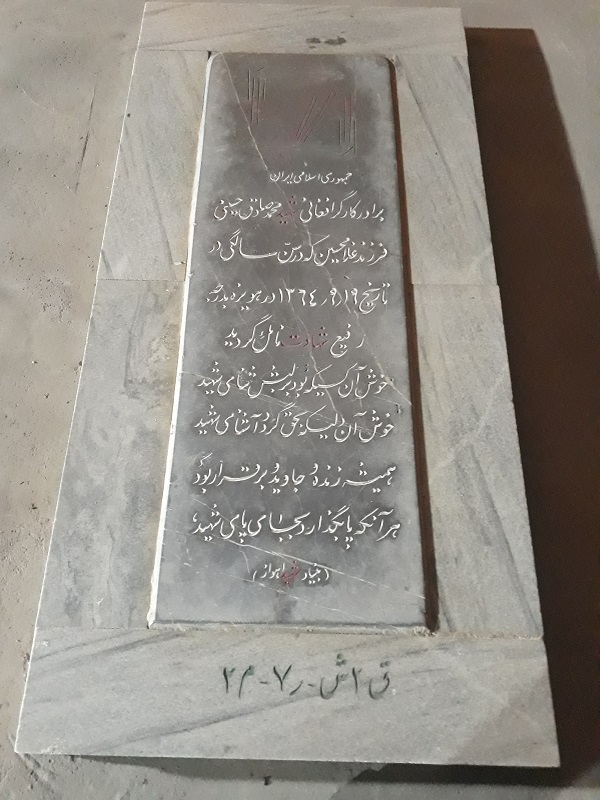 جمهوری اسلامی ایران
برادر کارگر افغانی شهید محمد صادق حسینی
فرزند غلامحسین که در سن سالگی در
تاریخ ۱۹ر۹ر۱۳۶۴ در هویزه بدرجه
رفیع شهادت نائل گردید
خوش آن کسیکه بود بر لبش ثنای شهید
خوش آن دلیکه بحق گردد آشنای شهید
همیشه زنده و جاوید و برقرار بود
هر آنکه پا بگذارد بجای پای شهید
(بنیاد شهید اهواز)
ق۲ ش-ر۷-م۲